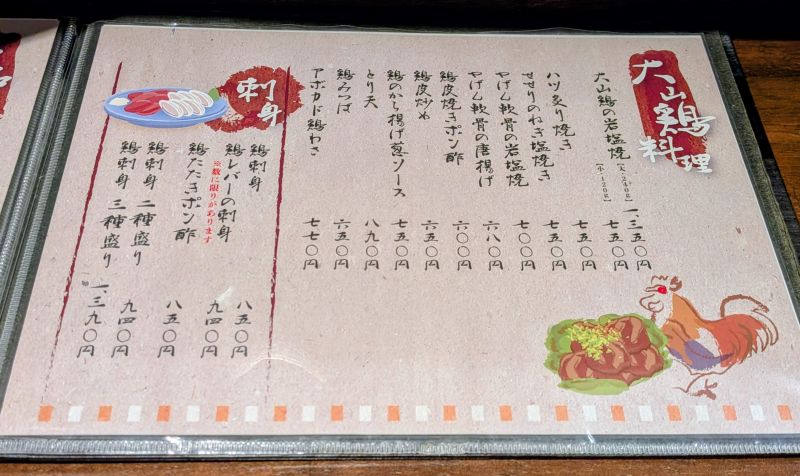 大山鶏料理
大山鶏の岩塩焼 【大…240g】 一、三五〇円
【小…120g】 七五〇円
ハツ炙り焼き 五五〇円
せせりのねぎ塩焼き 七五〇円
やげん軟骨の岩塩焼 七〇〇円
やげん軟骨の唐揚げ 六八〇円
鶏皮焼きポン酢 六〇〇円
鶏皮炒め 六五〇円
鶏のから揚げ葱ソース 七五〇円
とり天 八九〇円
鶏みつば 六五〇円
アボカド鶏わさ 七七〇円
刺身
鶏刺身 八五〇円
鶏レバーの刺身 九四〇円
※数に限りがあります
鶏たたきポン酢 八五〇円
鶏刺身 二種盛り 九四〇円
鶏刺身 三種盛り 一、三九〇円